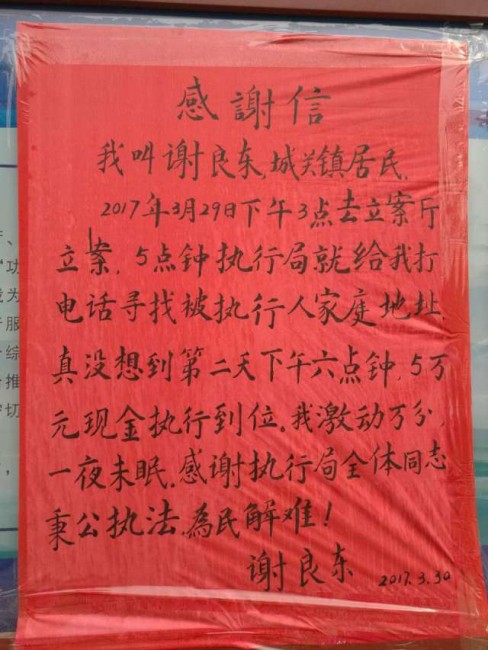 感謝信
我叫谢良东,城关镇居民.
2017年3月29日下午3点去立案厅
立案,5点钟执行局就给我打
电话寻找被执行人家庭地址.
真没想到第二天下午六点钟,5万
元现金执行到位。我激动万分,
一夜未眠.感谢执行局全体同志
秉公执法,為民解难!
谢良东 2017.3.30
功
成为
服
综
推
切